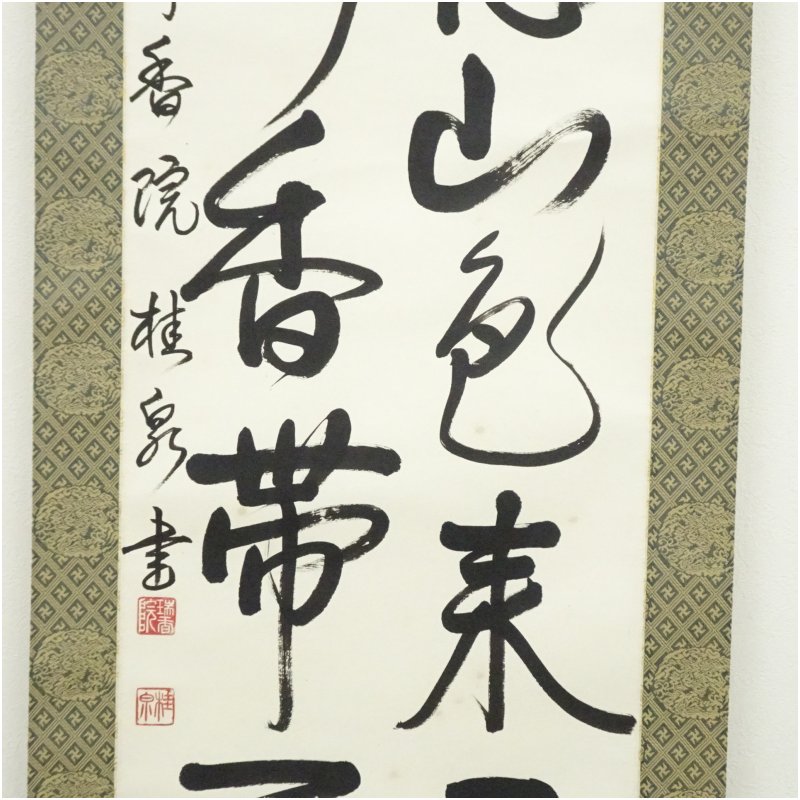 山色来
香帯
香院桂泉書
瑞香院
桂泉